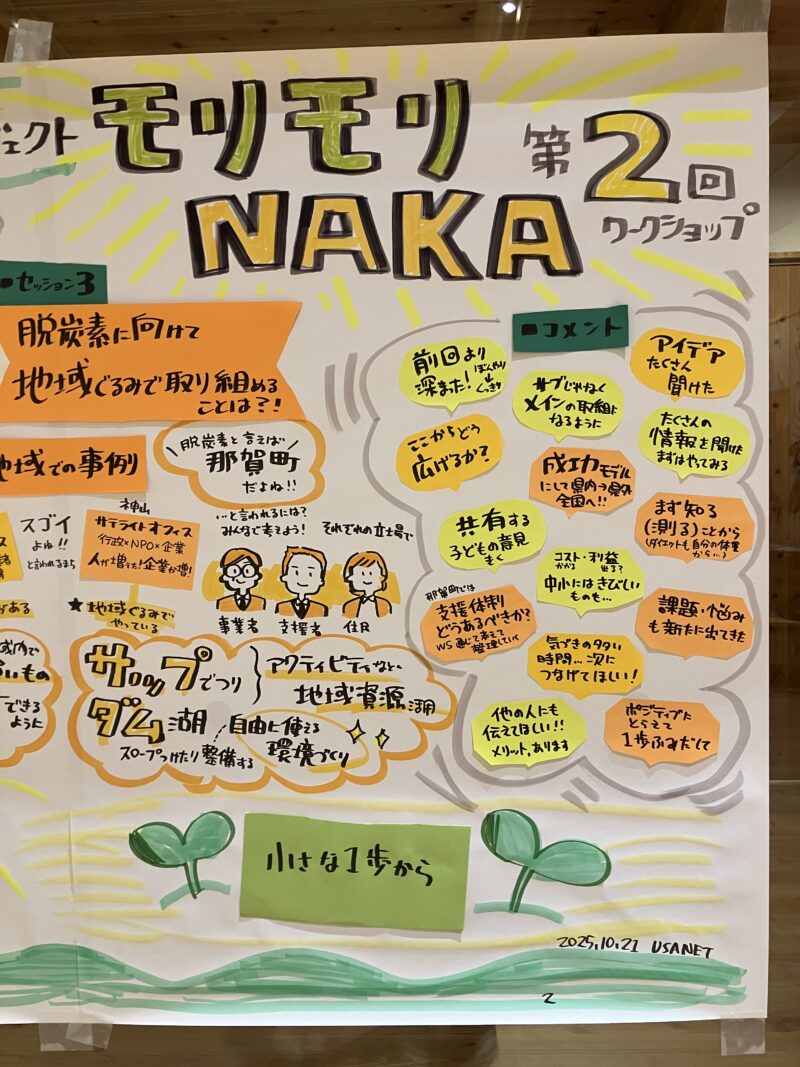 ジェクト
モリモリ
NAKA
第2回
ワークショップ
■セッション3
脱炭素に向けて
地域ぐるみで取り組める
ことは?!
地域での事例
脱炭素と言えば
那賀町
だよね!!
…と言われるには?
みんなで考えよう!
それぞれの立場で
事業者
支援者
住民
スゴイ
よね!!
と言われるまち
神山
サテライトオフィス
行政×NPO×企業
人が増えた!企業が増!
★地域ぐるみで
やっている
がある
域内で
いもの
できる
ように
サップでつり
ダム湖
アクティビティなど
地域資源活用
自由に使える
環境づくり
スロープつけたり整備する
■コメント
前回より
深また!
ぼんやり
↓
くっきり
サブじゃなく
メインの取組に
なるように
アイデア
たくさん
聞けた
ここからどう
広げるか?
成功モデル
にして県内→県外
全国へ!!
たくさんの
情報を聞けた
まずはやってみる
共有する
子どもの意見
きく
コスト・利益
かかる 出る?
中小にはきびしい
ものも…
まず知る
(測る)ことから
(ダイエットも自分の体重
から…)
那賀町では
支援体制
どうあるべきか?
WS通じて考えて
整理していく
気づきの多い
時間…次に
つなげてほしい!
課題・悩み
も新たに出てきた
他の人にも
伝えてほしい!!
メリット、あります
ポジティブに
とらえて
1歩ふみだして
小さな1歩から
2025.10.21 USANET
2